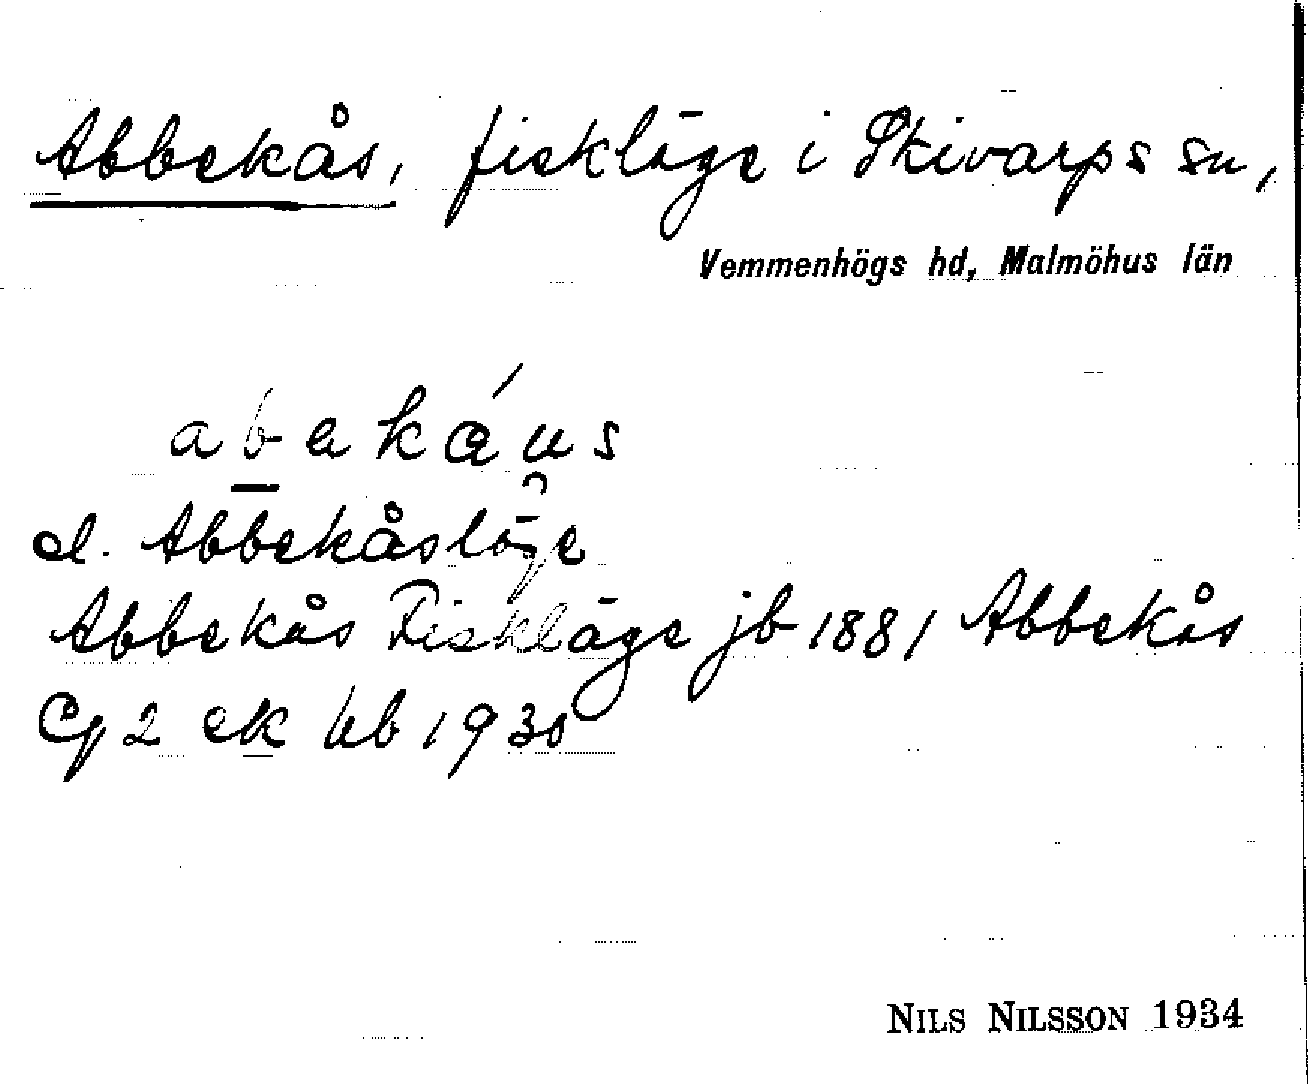 Abbekås, fiskläge i Skivarps sn,
Vemmenhögs hd, Malmöhus län
abekáu̯s
el. Abbekåsläge
Abbekås Fiskläge jb 1881 Abbekås
Cg 2 ek bb 1930
NILS NILSSON 1934